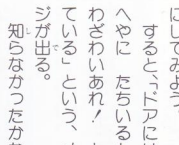 にしてみよう。
すると、「ドアには
へやに たちいる
わざわいあれ!
ている」という、
ジが出る。
知らなかったか